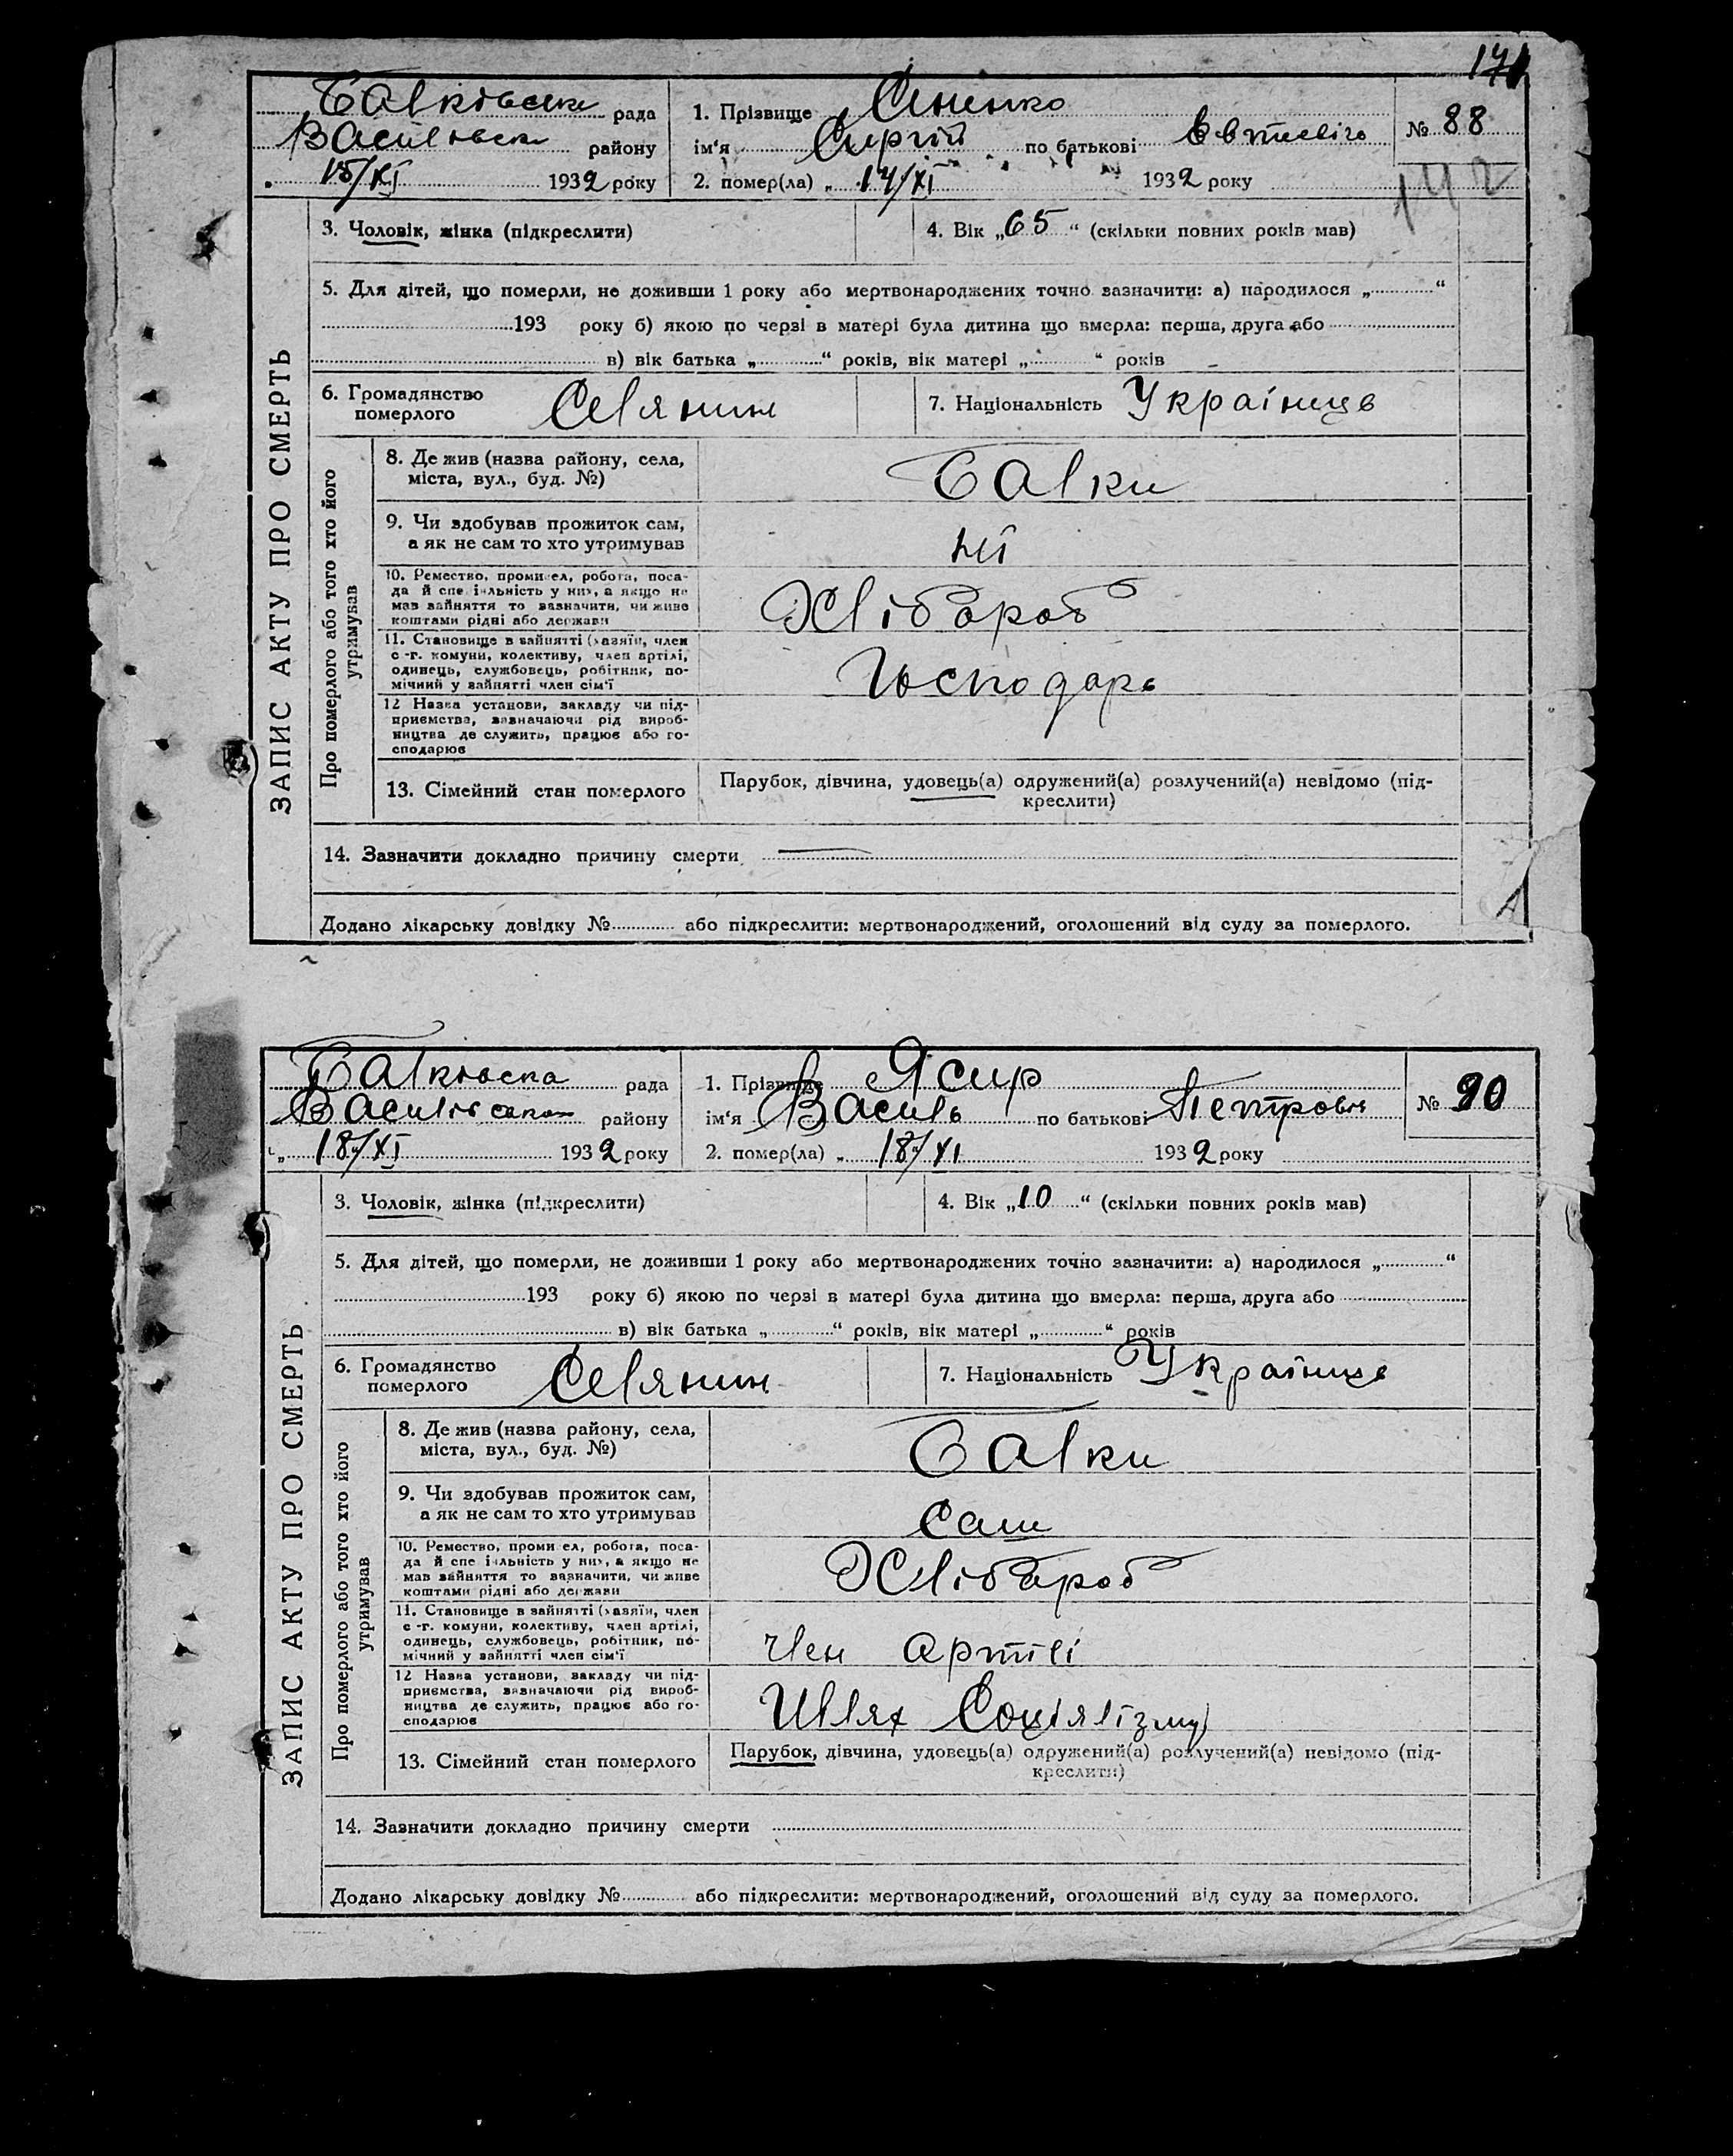 171
Балківська рада
Василівськ району
15/XI 1932 року
1. Прізвище Сіненко
ім'я Сиргій по батькові
2. помер(ла) „ 14/XI 1932 року
№ 88
142
ЗАПИС АКТУ ПРО СМЕРТЬ
3. Чоловік, жінка (підкреслити)
4. Вік „65“ (скільки повних років мав)
5. Для дітей, що померли, не доживши 1 року або мертвонароджених точно зазначити: а) народилося „ “
193 року б) якою по черзі в матері була дитина що вмерла: перша, друга або
в) вік батька „ “ років, вік матері „ “ років
6. Громадянство
померлого
Селянин
7. Національність Українць
Про померлого або того хто його
утримував
8. Де жив (назва району, села,
міста, вул., буд. №)
Балки
9. Чи здобував прожиток сам,
а як не сам то хто утримував
ні
10. Ремество, промисел, робота, поса-
да й спеціяльність у них, а якщо не
мав зайняття то зазначити, чи живе
коштами рідні або держави
Хлібороб
11. Становище в зайнятті (хазяїн, член
с.-г. комуни, колективу, член артілі,
одинець, службовець, робітник, по-
мічний у зайнятті член сім'ї
Господарь
12 Назва установи, закладу чи під-
приємства, зазначаючи рід вироб-
ництва де служить, працює або го-
сподарює
13. Сімейний стан померлого
Парубок, дівчина, удовець(а) одружений(а) розлучений(а) невідомо (під-
креслити)
14. Зазначити докладно причину смерти
Додано лікарську довідку № або підкреслити: мертвонароджений, оголошений від суду за померлого.
Балківська рада
району
„ 18/XI 1932 року
1. Прізвище Ясир
ім'я Василь по батькові Петровіч
2. помер(ла) „ 18/XI 1932 року
№ 90
ЗАПИС АКТУ ПРО СМЕРТЬ
3. Чоловік, жінка (підкреслити)
4. Вік „10“ (скільки повних років мав)
5. Для дітей, що померли, не доживши 1 року або мертвонароджених точно зазначити: а) народилося „ “
193 року б) якою по черзі в матері була дитина що вмерла: перша, друга або
в) вік батька „ “ років, вік матері „ “ років
6. Громадянство
померлого
Селянин
7. Національність Українць
Про померлого або того хто його
утримував
8. Де жив (назва району, села,
міста, вул., буд. №)
Балки
9. Чи здобував прожиток сам,
а як не сам то хто утримував
Сам
10. Ремество, промисел, робота, поса-
да й спеціяльність у них, а якщо не
мав зайняття то зазначити, чи живе
коштами рідні або держави
Хлібороб
11. Становище в зайнятті (хазяїн, член
с.-г. комуни, колективу, член артілі,
одинець, службовець, робітник, по-
мічний у зайнятті член сім'ї
Член артілі
12 Назва установи, закладу чи під-
приємства, зазначаючи рід вироб-
ництва де служить, працює або го-
сподарює
Шлях Соціялізму
13. Сімейний стан померлого
Парубок, дівчина, удовець(а) одружений(а) розлучений(а) невідомо (під-
креслити)
14. Зазначити докладно причину смерти
Додано лікарську довідку № або підкреслити: мертвонароджений, оголошений від суду за померлого.